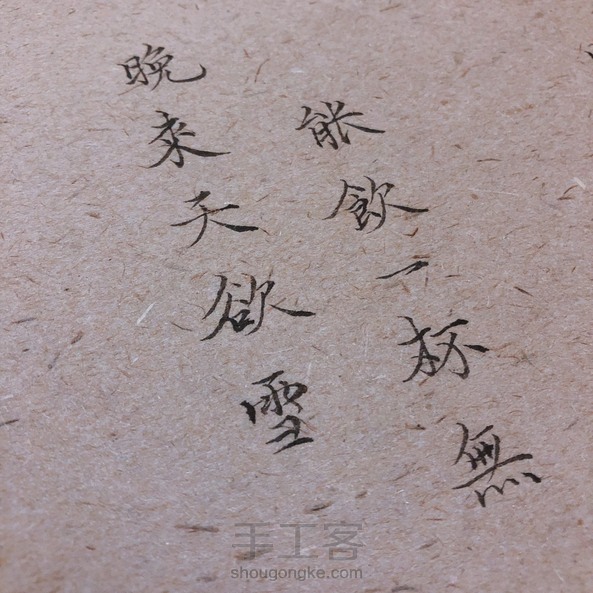 晚來天欲雪
能飲一杯無
手工客
shougongke.com